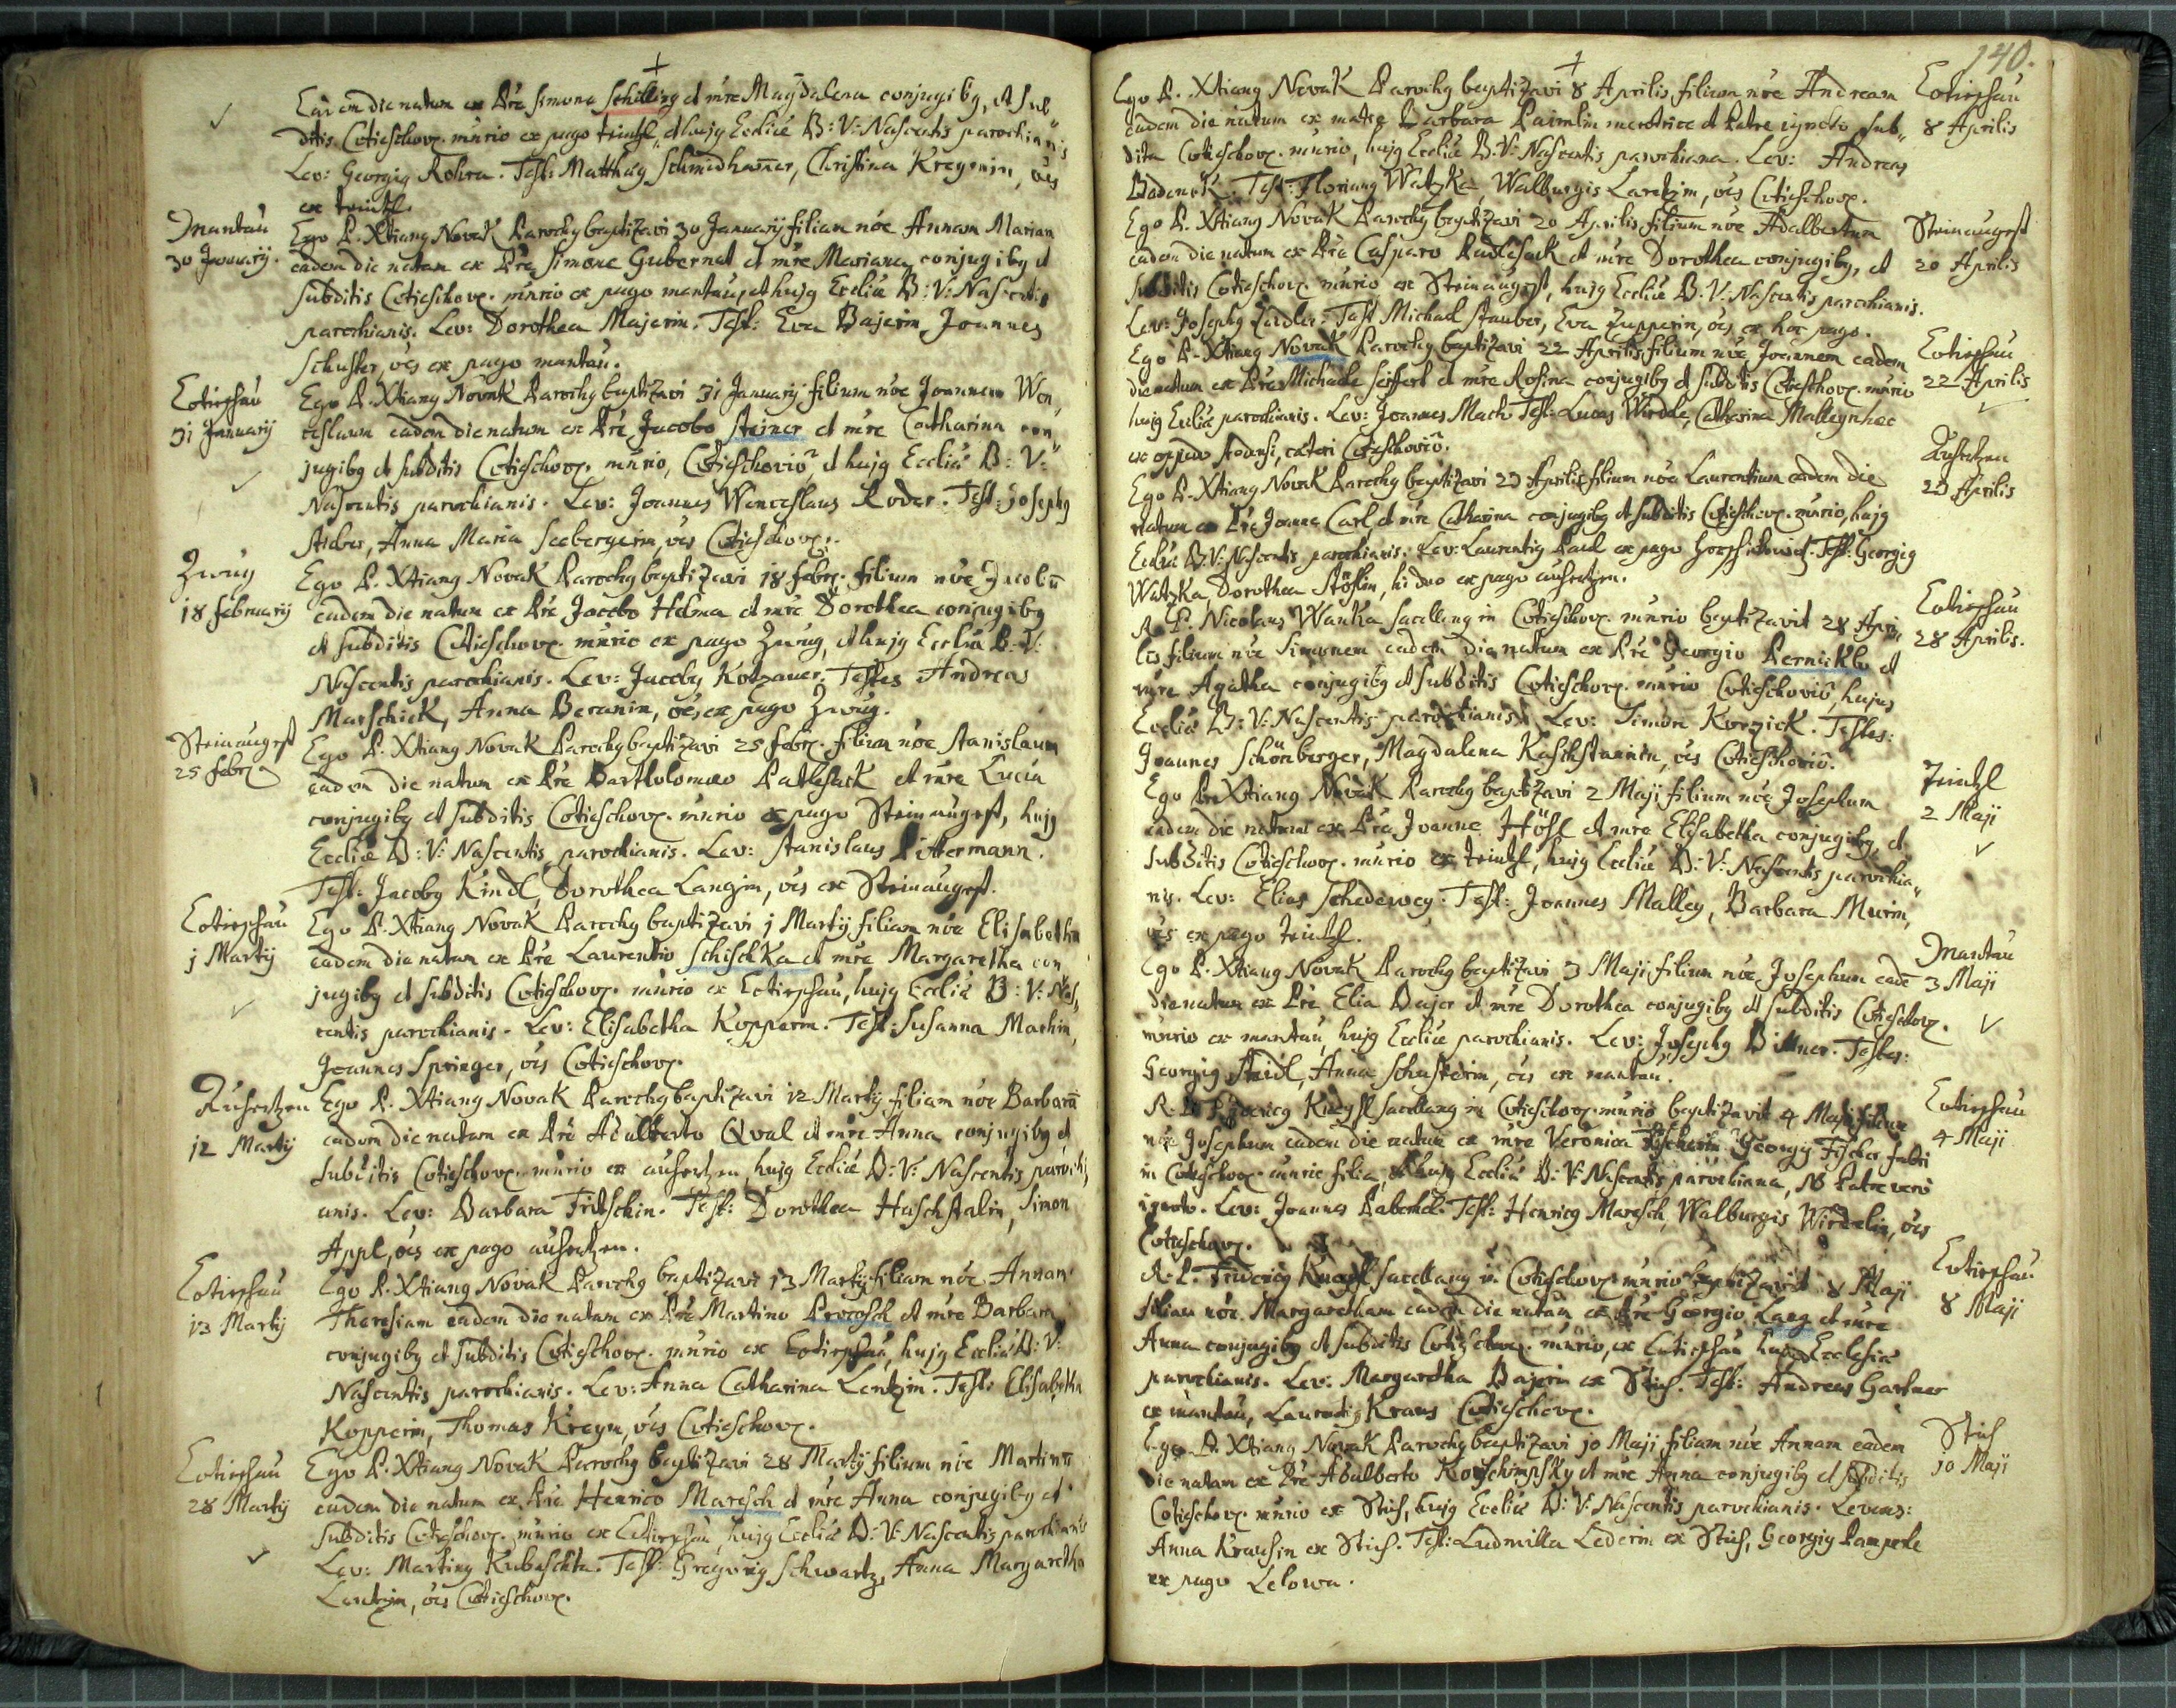 Eadem die natam ex P̃re Simone Schilling et m̃re Magdalena conjugibg, et sub„
ditis Cotieschov. m̃rio ex pago teintzl et hujg Eccliæ B: V: Nascentis parochianis
Lev: Georgig Rohra. Test: Matthæg Schmidhamer, Christina Kreysnin, oẽs
ex teintzl.
Mantau
30 Januarij.
Ego P. Xtiang Novak Parochg baptizavi 30 Januarij filiam nõe Annam Mariam
eadem die natam ex P̃re Simone Gubernat et m̃re Mariana conjugibg et
subditis Cotieschov. m̃rio ex pago mantau, et hujg Eccliæ B: V: Nascentis
parochianis. Lev: Dorothea Majerin. Test: Eva Bajerin Joannes
Schuster, oẽs ex pago mantau.
Cotieschau
31 Januarij
Ego P. Xtiang Novak Parochg baptizavi 31 Januarij filium nõe Joannem Wen„
ceslaum eadem die natum ex P̃re Jacobo Steiner et m̃re Catharina con„
jugibg et subditis Cotieschov. m̃rio, Cotieschoviõ et hujg Eccliæ B: V:
Nascentis parochianis. Lev: Joannes Wenceslaus Roder. Test: Josephg
Stieber, Anna Maria Seebergerin, oẽs Cotieschov.
Zwug
18 februarij
Ego P. Xtiang Novak Parochg baptizavi 18 febr. filium nõe Jacobũ
eadem die natum ex P̃re Jacobo Helma et m̃re Dorothea conjugibg
et subditis Cotieschov. m̃rio ex pago Zwug, et hujg Eccliæ B: V:
Nascentis parochianis. Lev: Jacobg Kotzauer. Testes Andreas
Marschick, Anna Beranin, oẽs ex pago Zwug.
Steinaugest
25 febr
Ego P. Xtiang Novak Parochg baptizavi 25 febr. filium nõe Stanislaum
eadem die natum ex P̃re Bartholomæo Patlesack et m̃re Lucia
conjugibg et subditis Cotieschov. m̃rio ex pago Steinaugest, hujg
Eccliæ B: V: Nascentis parochianis. Lev: Stanislaus Pittermann.
Test: Jacobg Kindl, Dorothea Langin, oẽs ex Steinaugest.
Cotieschau
1 Martij
Ego P. Xtiang Novak Parochg baptizavi 1 Martij filiam nõe Elisabetha
eadem die natam ex P̃re Laurentio Schischka et m̃re Margaretha con
jugibg et subditis Cotieschov. m̃rio ex Cotieschau, hujg Eccliæ B: V: Nas„
centis parochianis. Lev: Elisabetha Kopperin. Test: Susanna Machin,
Joannes Sprieger, oẽs Cotieschov.
Auherzen
12 Martij
Ego P. Xtiang Novak Parochg baptizavi 12 Martij filiam nõe Barbarã
eadem die natam ex P̃re Adalberto Qval et m̃re Anna conjugibg et
subditis Cotieschov. m̃rio ex auhertzen, hujg Eccliæ B: V: Nascentis parochi„
anis. Lev: Barbara Fritschin. Test: Dorothea Huschstalin, Simon
Appl, oẽs ex pago auhertzen.
Cotieschau
13 Martij
Ego P. Xtiang Novak Parochg baptizavi 13 Martij filiam nõe Annam
Theresiam eadem die natam ex P̃re Martino Procosch et m̃re Barbara
conjugibg et subditis Cotieschov. m̃rio ex Cotieschau, hujg Eccliæ B: V:
Nascentis parochianis. Lev: Anna Catharina Lentzin. Test: Elisabetha
Kopperin, Thomas Kreyn, oẽs Cotieschov.
Cotieschau
28 Martij
Ego P. Xtiang Novak Parochg baptizavi 28 Martij filium nõe Martinũ
eadem die natum ex P̃re Henrico Maresch et m̃re Anna conjugibg et
subditis Cotieschov. m̃rio ex Cotieschau, hujg Eccliæ B: V: Nascentis parochianis
Lev: Marting Kubaschta. Test: Gregorig Schwartz, Anna Margaretha
Lentzin, oẽs Cotieschov.
140.
Ego P. Xtiang Novak Parochg baptizavi 8 Aprilis filium nõe Andream
eadem die natum ex matre Barbara Paimlin meretrice et Patre ignoto, sub„
dita Cotieschov. m̃rio, hujg Eccliæ B. V: Nascentis parochiana. Lev: Andreas
Badenek. Test: Floriang Watzka Walburgis Laretzin, oẽs Cotieschov.
Cotieschau
8 Aprilis
Ego P. Xtiang Novak Parochg baptizavi 20 Aprilis filium nõe Adalbertum
eadem die natum ex P̃re Casparo Padlesak et m̃re Dorothea conjugibg, et
subditis Cotieschov. m̃rio ex Steinaugest, hujg Eccliæ B. V: Nascentis parochianis.
Lev: Josephg Zeidler. Test Michael Stauber, Eva Zupperin, oẽs ex hoc pago.
Steinaugest
20 Aprilis
Ego P. Xtiang Novak Parochg baptizavi 22 Aprilis filium nõe Joannem eadem
die natum ex P̃re Michaele Seiffert et m̃re Rosina conjugibg et subditis Cotieschov. m̃rio
hujg Eccliæ parochianis. Lev: Joannes Mach Test: Lucas Wirdde, Catharina Malleynhec
ex oppido Stodensi, cæteri Cotieschoviõ.
Cotieschau
22 Aprilis
Ego P. Xtiang Novak Parochg baptizavi 23 Aprilis filium nõe Laurentium eadem die
natum ex P̃re Joanne Carl et m̃re Catharina conjugibg et subditis Cotieschov. m̃rio, hujg
Eccliæ B. V: Nascentis parochianis. Lev: Laurentig Paul ex pago Horzikowitz. Test: Georgig
Watzka, Dorothea Stöslin, hi duo ex pago auhertzen.
Auhertzen
23 Aprilis
R. P. Nicolaus Wanka Sacellang in Cotieschov. m̃rio baptizavit 28 Apri„
lis filium nõe Simonem eadem die natum ex P̃re Georgio Pernickle et
m̃re Agatha conjugibg et subditis Cotieschov. m̃rio Cotieschoviõ, hujus
Eccliæ B: V: Nascentis parochianis. Lev: Simon Korzick. Testes:
Joannes Schönberger, Magdalena Kaschstanin, oẽs Cotieschoviõ.
Cotieschau
28 Aprilis.
Ego P. Xtiang Novak Parochg baptizavi 2 Maji filium nõe Josephum
eadem die natum ex P̃re Joanne Hösl et m̃re Elisabetha conjugibg, et
subditis Cotieschov. m̃rio ex teintzl, hujg Eccliæ B: V: Nascentis parochia„
nis. Lev: Elias Schedewey. Test: Joannes Malley, Barbara Murin,
oẽs ex pago teintzl.
Teintzl
2 Maji
Ego P. Xtiang Novak Parochg baptizavi 3 Maji filium nõe Josephum eadẽ
die natum ex P̃re Elia Bajer et m̃re Dorothea conjugibg et subditis Cotieschov.
m̃rio ex mantau, hujg Eccliæ parochianis. Lev: Josephg Bittner. Testes:
Georgig Steidl, Anna Schusterin, oẽs ex mantau.
Mantau
3 Maji
R. P. Fridericg Knesl Sacellang in Cotieschov. m̃rio baptizavit 4 Maji filium
nõe Josephum eadem die natum ex m̃re Veronica Fischerin Georgij Fischer fabri
in Cotieschov. m̃rio filia, et hujg Eccliæ B: V: Nascentis parochiana, Patre vero
ignoto. Lev: Joannes Pabenel. Test: Henricg Maresch, Walburgis Wirdelin, oẽs
Cotieschov.
Cotieschau
4 Maji
R. P. Fridericg Knesl Sacellang in Cotieschov. m̃rio baptizavit 8 Maji
filiam nõe Margaretham eadem die natam ex P̃re Georgio Lang et m̃re
Anna conjugibg et subditis Cotieschov. m̃rio, ex Cotieschau hujg Ecclesiæ
parochianis. Lev: Margaretha Bajerin ex Stich. Test: Andreas Gartner
ex mantau, Laurentig Kraus Cotieschov.
Cotieschau
8 Maji
Ego P. Xtiang Novak Parochg baptizavi 10 Maji filiam nõe Annam eadem
die natam ex P̃re Adalberto Kotschimpsky et m̃re Anna conjugibg et subditis
Cotieschov. m̃rio ex Stich, hujg Eccliæ B: V: Nascentis parochianis. Levans:
Anna Krausin ex Stich. Test: Ludmilla Lederin ex Stich, Georgig Pamperle
ex pago Lelowa.
Stich
10 Maji